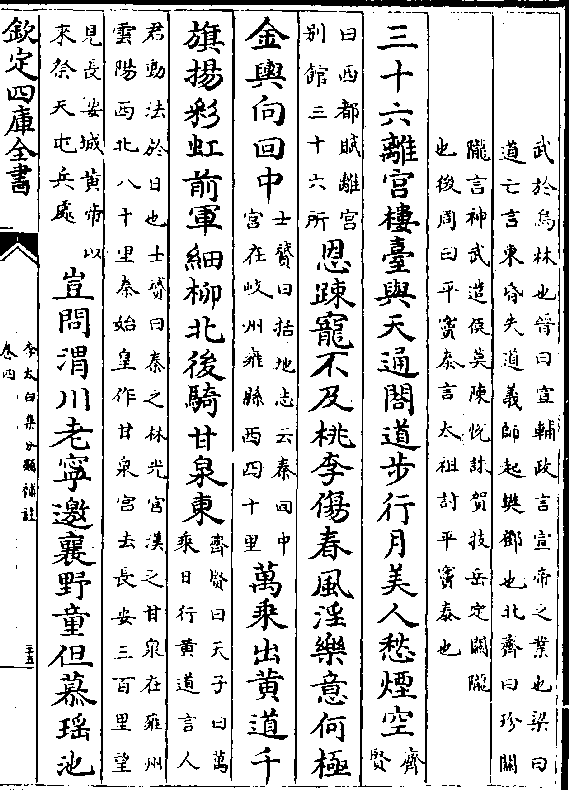 武於烏林也晉曰宣輔政言宣帝之業也梁曰
道亡言東昏失道義師起樊鄧也北齊曰珍關
隴言神武遣侯莫陳悅誅賀拔岳定關隴
也後周曰平竇泰言太祖討平竇泰也
三十六離宮樓臺與天通閣道步行月美人愁煙空
齊賢
曰西都賦離宮
别館三十六所
恩疎寵不及桃李傷春風淫樂意何極
金輿向回中
士贇曰括地志云秦回中
宮在岐州雍縣西四十里
萬乘出黄道千
旗揚彩虹前軍細柳北後騎甘泉東
齊賢曰天子曰萬
乘日行黄道言人
君動法於日也士贇曰秦之林光宫漢之甘泉在雍州
雲陽西北八十里秦始皇作甘泉宫去長安三百里望
見長安城黄帝以
來祭天屯兵處
豈問渭川老寧邀襄野童但慕瑶池
欽定四庫全書
李太白集分類補註
卷四
三五